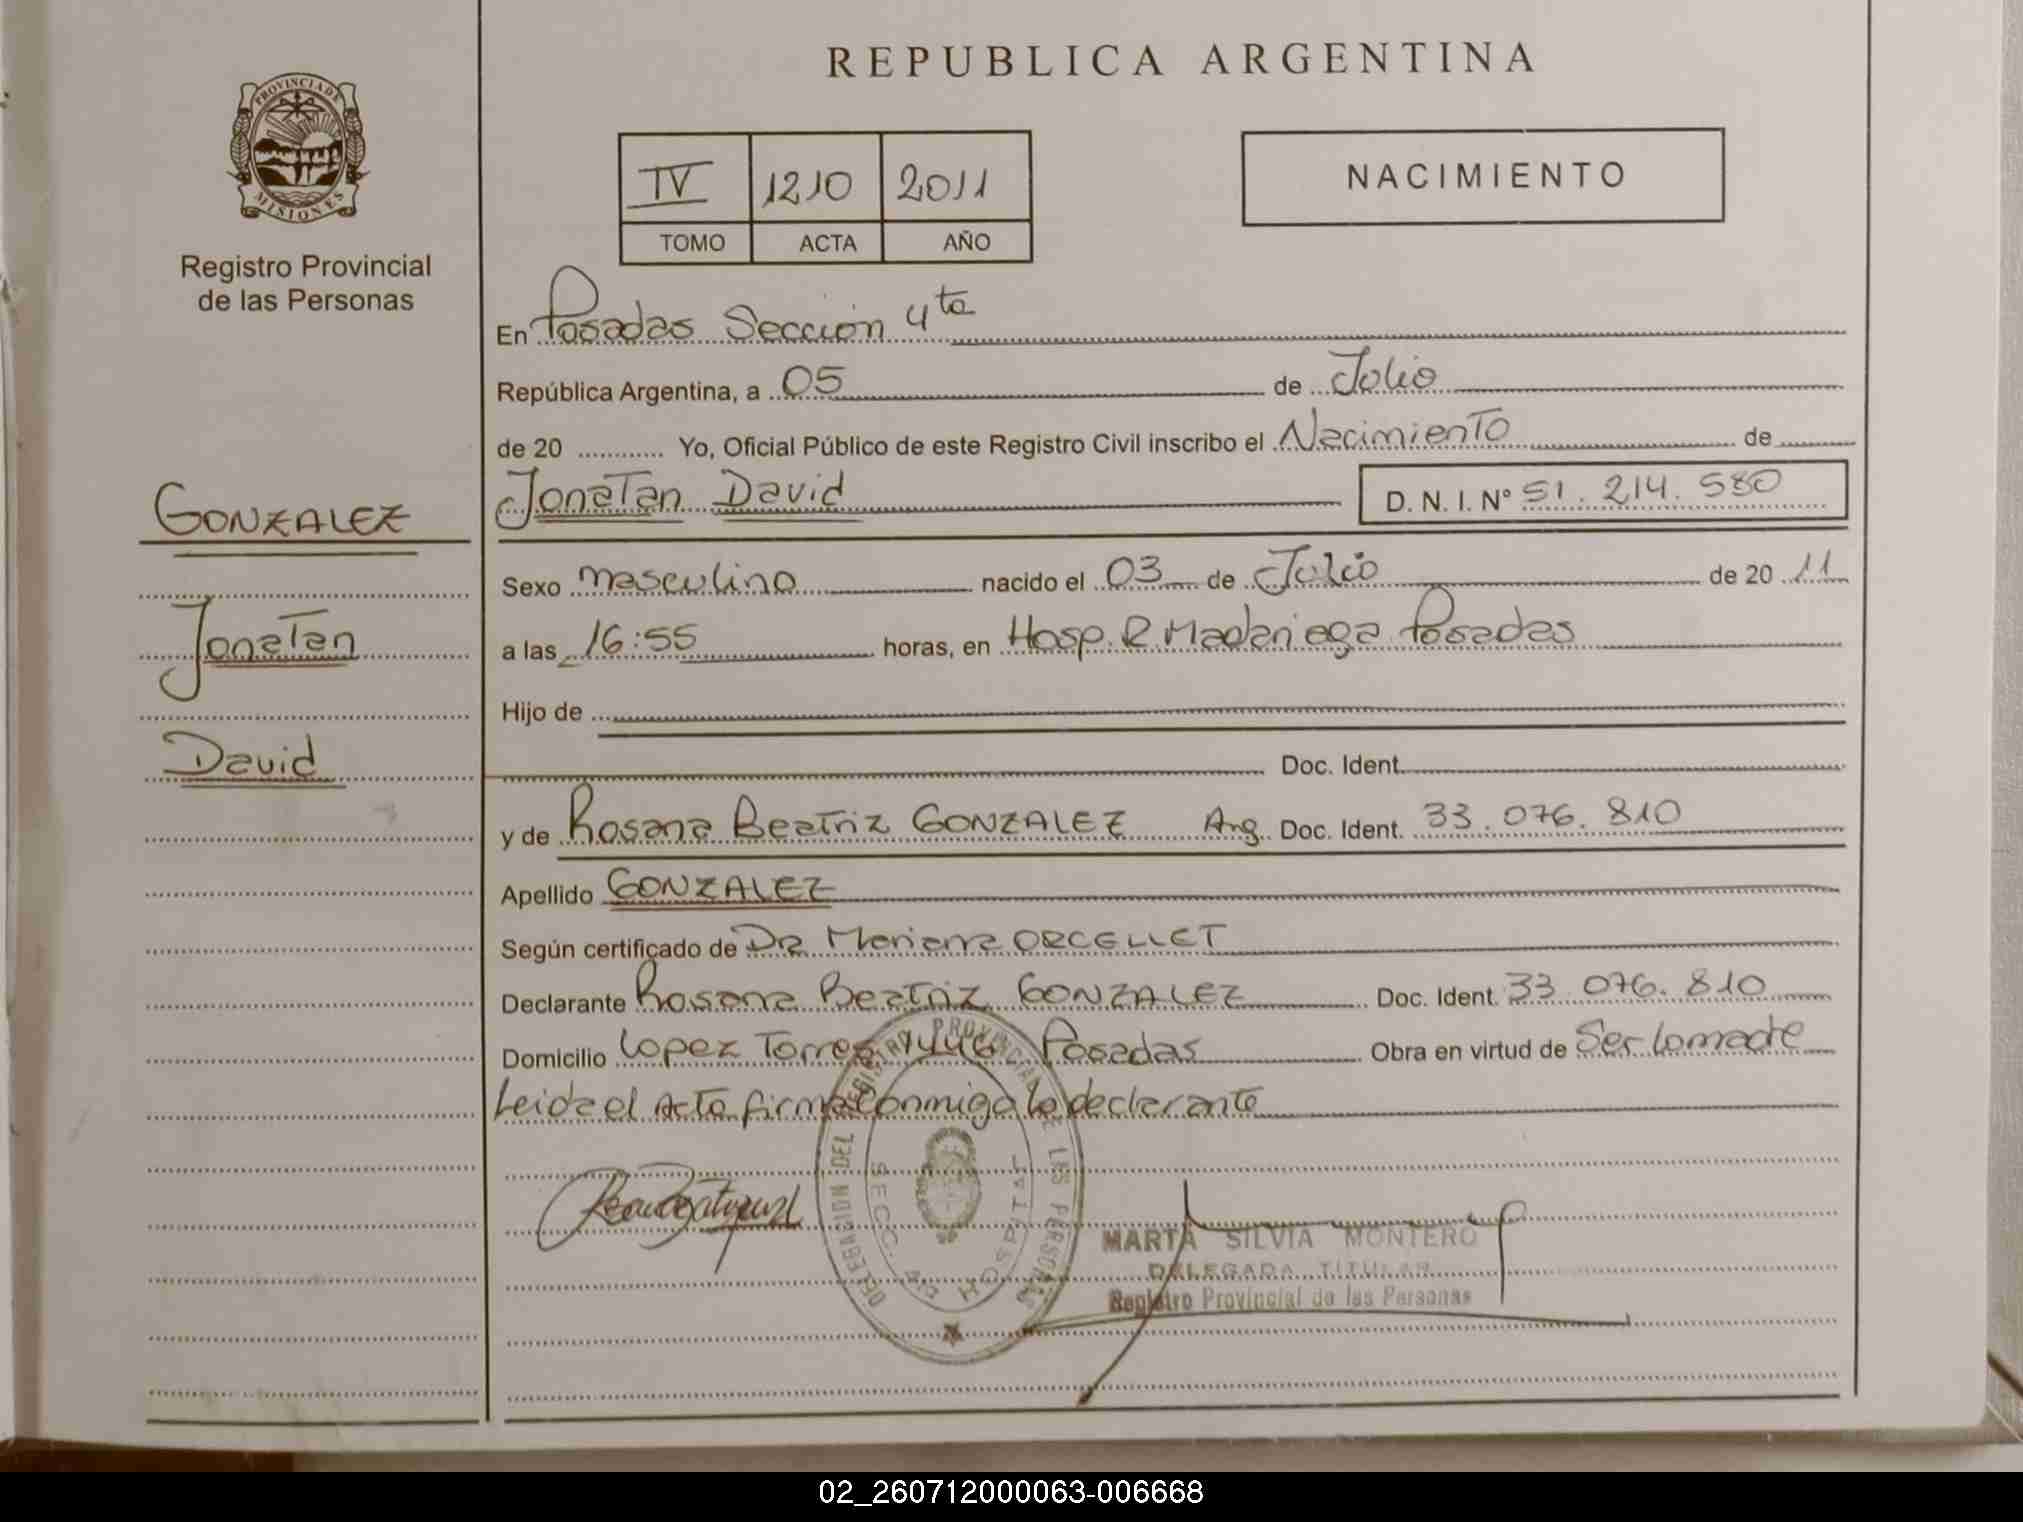 REPUBLICA ARGENTINA
PROVINCIA DE
MISIONES
Registro Provincial
de las Personas
IV 1210 2011
TOMO ACTA AÑO
NACIMIENTO
En Posadas Sección 4ta
República Argentina, a 05 de Julio
de 20 Yo, Oficial Público de este Registro Civil inscribo el Nacimiento de
Jonatan David D. N. I. Nº 51.214.580
GONZALEZ
Jonatan
David
Sexo masculino nacido el 03 de Julio de 2011
a las 16:55 horas, en Hosp. R. Madariaga Posadas
Hijo de
Doc. Ident.
y de Rosana Beatriz GONZALEZ Arg. Doc. Ident. 33.076.810
Apellido GONZALEZ
Según certificado de Dra Mariana ORCELLET
Declarante Rosana Beatriz GONZALEZ Doc. Ident. 33.076.810
Domicilio Lopez Torres Posadas Obra en virtud de Ser la madre
Leida el Acta firma conmigo la declarante
DELEGACION DEL REGISTRO PROVINCIAL DE LAS PERSONAS
SECC. 4ta HOSPITAL
MARTA SILVIA MONTERO
DELEGADA TITULAR
Registro Provincial de las Personas
02_260712000063-006668